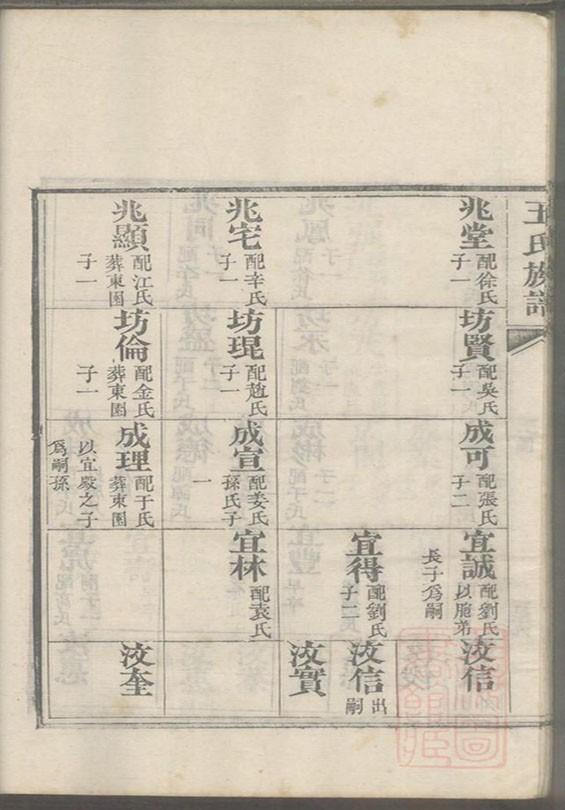 王氏族譜
兆堂 配徐氏 子一
坊賢 配吳氏 子一
成可 配張氏 子二
宜誠 配劉氏 以胞弟 長子為嗣
汝信
宜得 配劉氏 子二
汝信 出嗣
汝實
兆宅 配辛氏 子一
坊琨 配趙氏 子一
成宣 配姜氏 孫氏子 一
宜林 配袁氏
兆顯 配江氏 葬東園 子一
坊倫 配金氏 葬東園 子一
成理 配于氏 葬東園 以宜嚴之子 為嗣孫
汝奎